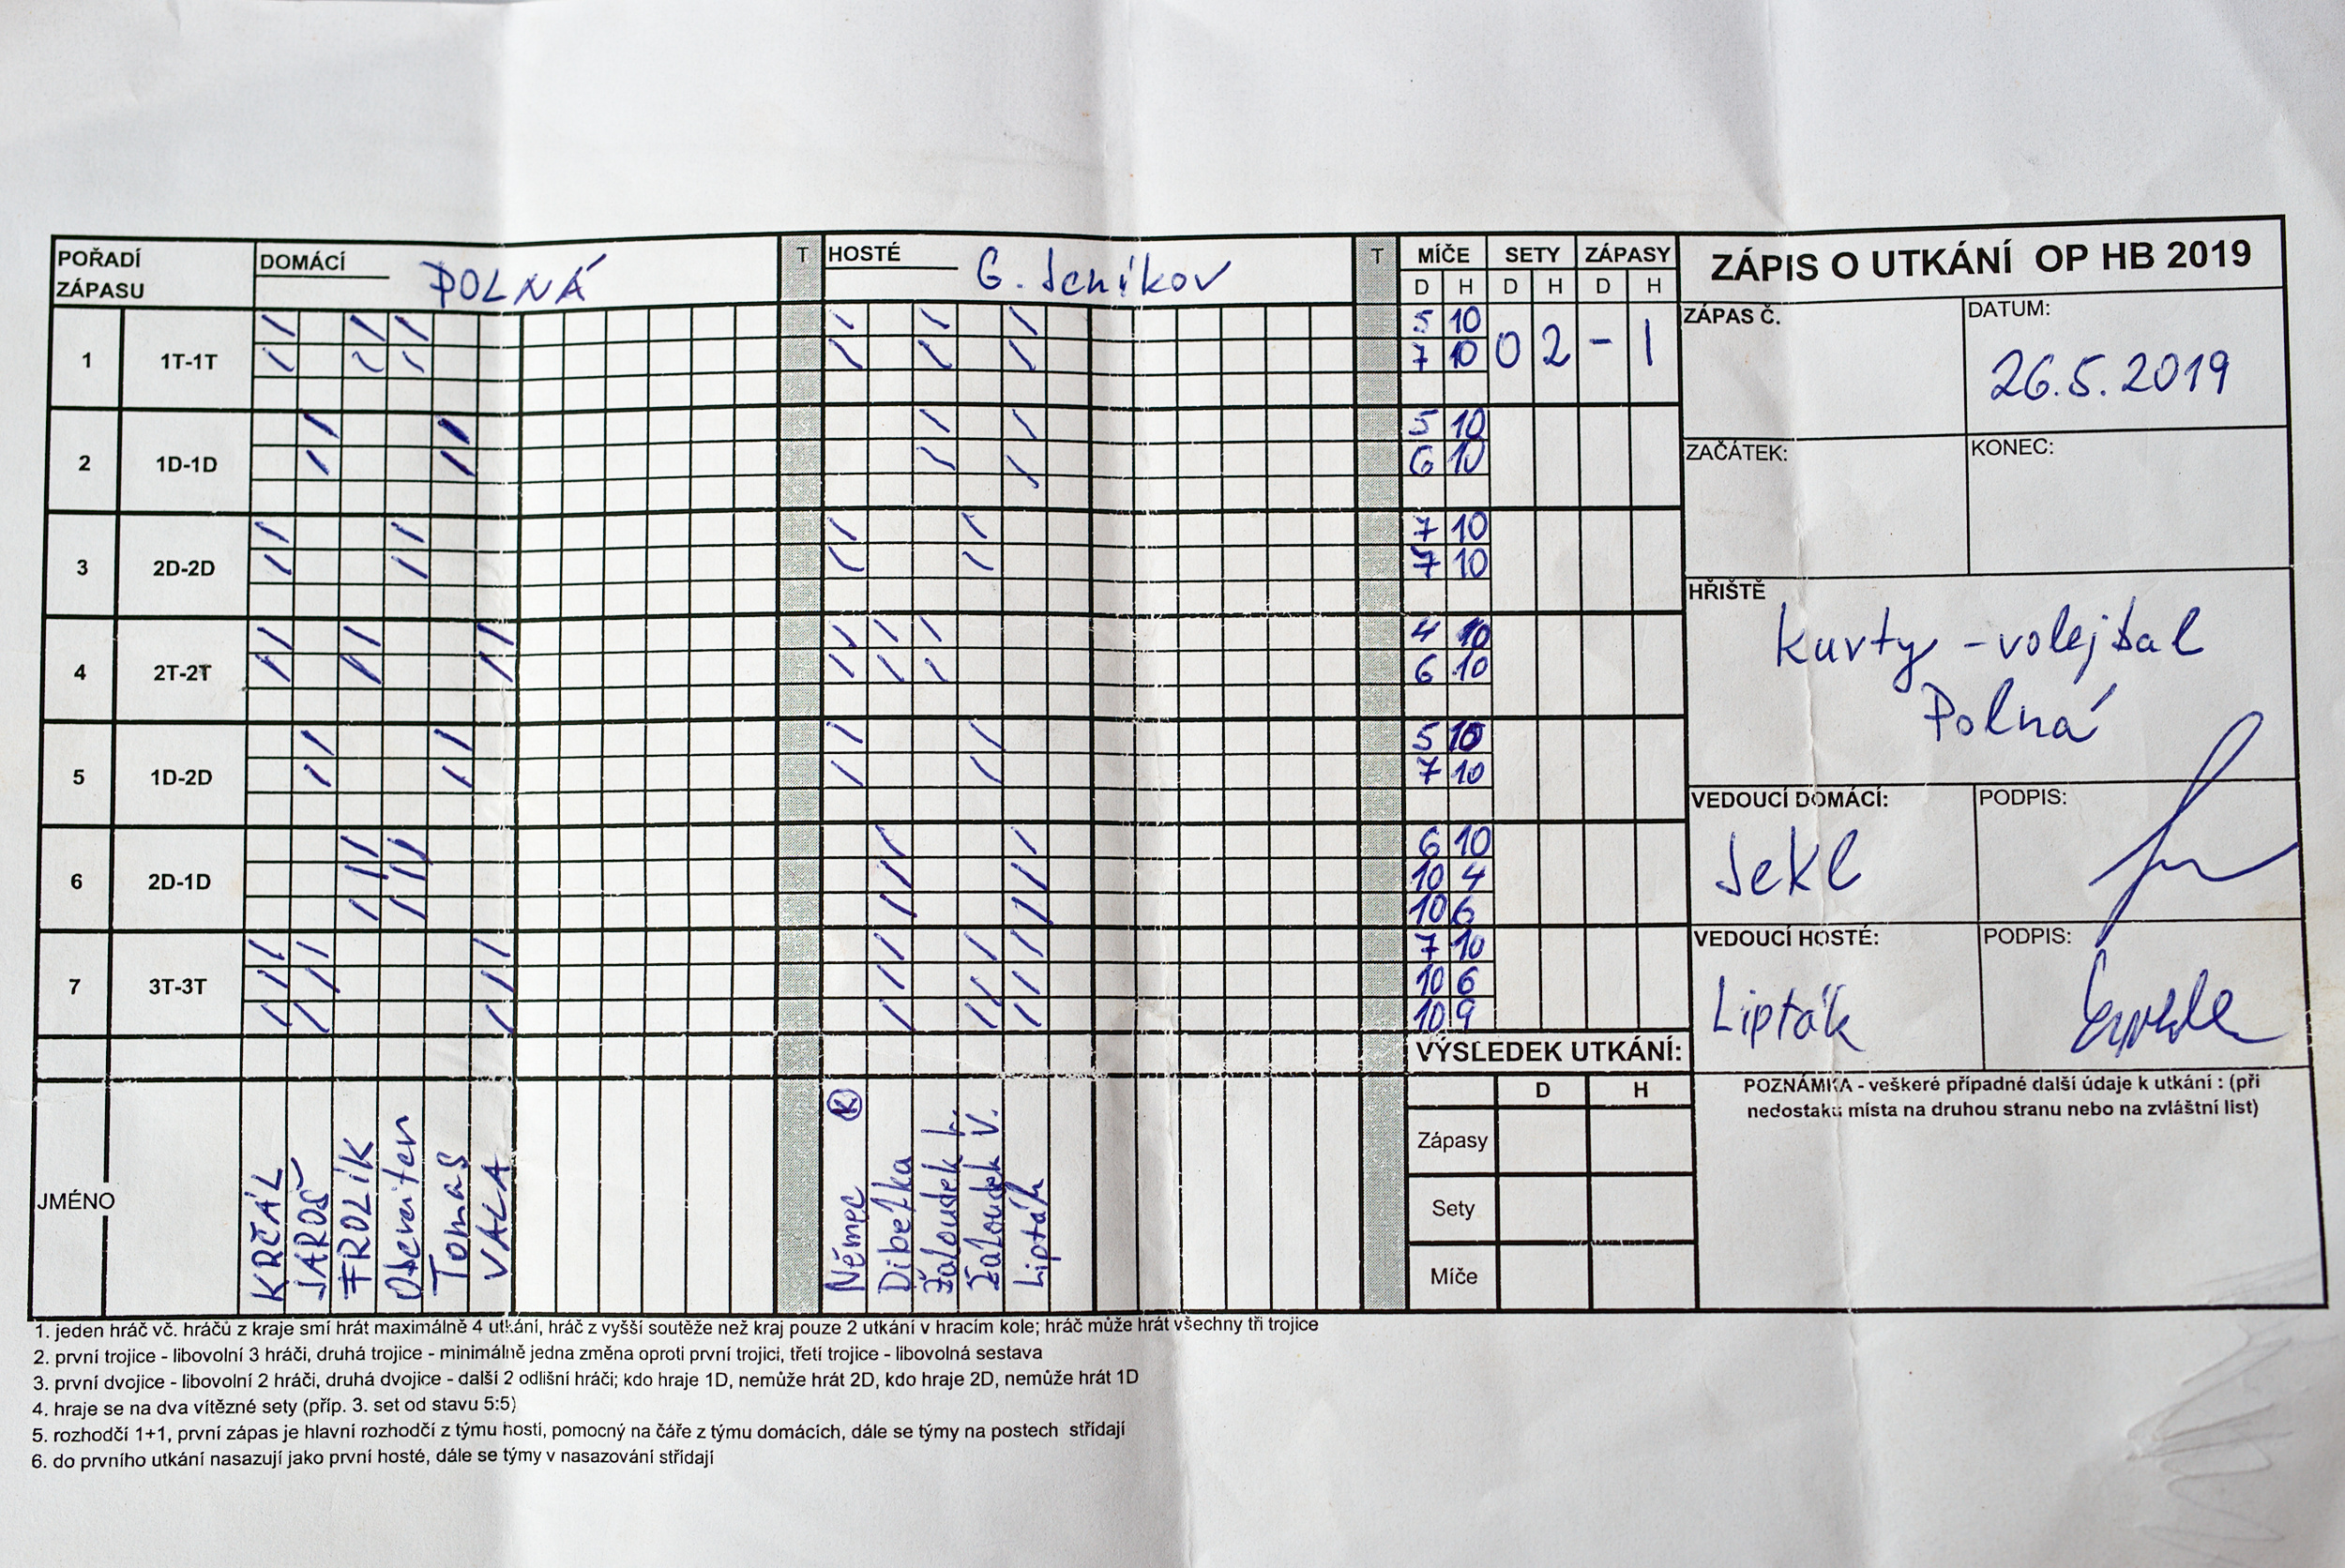 POŘADÍ ZÁPASU DOMÁCÍ POLNÁ T HOSTÉ G. Jeníkov T MÍČE SETY ZÁPASY
D H D H D H
1 1T-1T 5 10 0 2 - 1
7 10
2 1D-1D 5 10
6 10
3 2D-2D 7 10
7 10
4 2T-2T 4 10
6 10
5 1D-2D 5 10
7 10
6 2D-1D 6 10
10 4
10 6
7 3T-3T 7 10
10 6
10 9
JMÉNO
KRČÁL
JAROŠ
FROLÍK
Tomas
VALA
Němec K
Dibelka
Žaloudek
Žaloudek V.
Lipták
VÝSLEDEK UTKÁNÍ:
D H
Zápasy
Sety
Míče
ZÁPIS O UTKÁNÍ OP HB 2019
ZÁPAS Č. DATUM:
26.5.2019
ZAČÁTEK: KONEC:
HŘIŠTĚ
Kurty - volejbal
Polná
VEDOUCÍ DOMÁCÍ: PODPIS:
Jekl
VEDOUCÍ HOSTÉ: PODPIS:
Lipták
POZNÁMKA - veškeré případné další údaje k utkání : (při
nedostaku místa na druhou stranu nebo na zvláštní list)
1. jeden hráč vč. hráčů z kraje smí hrát maximálně 4 utkání, hráč z vyšší soutěže než kraj pouze 2 utkání v hracím kole; hráč může hrát všechny tři trojice
2. první trojice - libovolní 3 hráči, druhá trojice - minimálně jedna změna oproti první trojici, třetí trojice - libovolná sestava
3. první dvojice - libovolní 2 hráči, druhá dvojice - další 2 odlišní hráči; kdo hraje 1D, nemůže hrát 2D, kdo hraje 2D, nemůže hrát 1D
4. hraje se na dva vítězné sety (příp. 3. set od stavu 5:5)
5. rozhodčí 1+1, první zápas je hlavní rozhodčí z týmu hostí, pomocný na čáře z týmu domácích, dále se týmy na postech střídají
6. do prvního utkání nasazují jako první hosté, dále se týmy v nasazování střídají